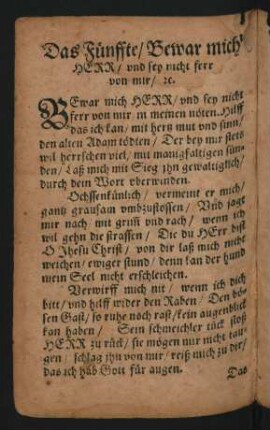 Das Fünffte/ Bewar mich
HERR/ vnd sey nicht ferr
von mir/ ꝛc.
BEwar mich HERR/ vnd sey nicht
ferr von mir in meinen nöten. Hilff
das ich kan/ mit hertz mut vnd sinn/
den alten Adam tödten/ Der bey mir stets
wil herrschen viel/ mit manigfaltigen sün-
den/ Laß mich mit Sieg jhn gewaltiglich/
durch dein Wort vberwinden.
Ochssenkünlich/ vermeint er mich/
gantz grausam vmbzustossen/ Vnd jagt
mir nach/ mit grim vnd rach/ wenn ich
wil gehn die strassen/ Die du HErr bist
O Jhesu Christ/ von dir laß mich nicht
weichen/ ewiger stund/ denn san der hund
mein Seel nicht erschleichen.
Verwirff mich nit/ wenn ich dich
bitt/ vnd hilff wider den Raben/ Den bö-
sen Gast/ so ruhe noch rast/ kein augenblick
kan haben/ Sein schmeichler tück stoß
HERR zu rück/ sie mögen mir nicht tau-
gen/ schlag jhn von mir/ reiß mich zu dir/
das ich hab Gott für augen.
Das